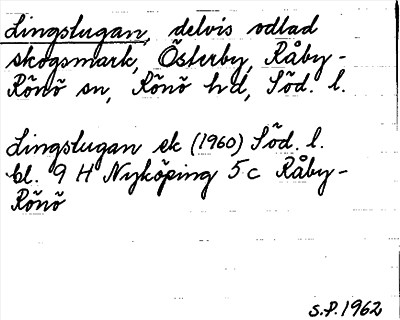 Lingstugan, delvis odlad
skogsmark, Österby, Råby-
Rönö sn, Rönö hd, Söd. l.
Lingstugan ek (1960) Söd. l.
bl. 9 H Nyköping 5 c Råby-
Rönö
S.P. 1962